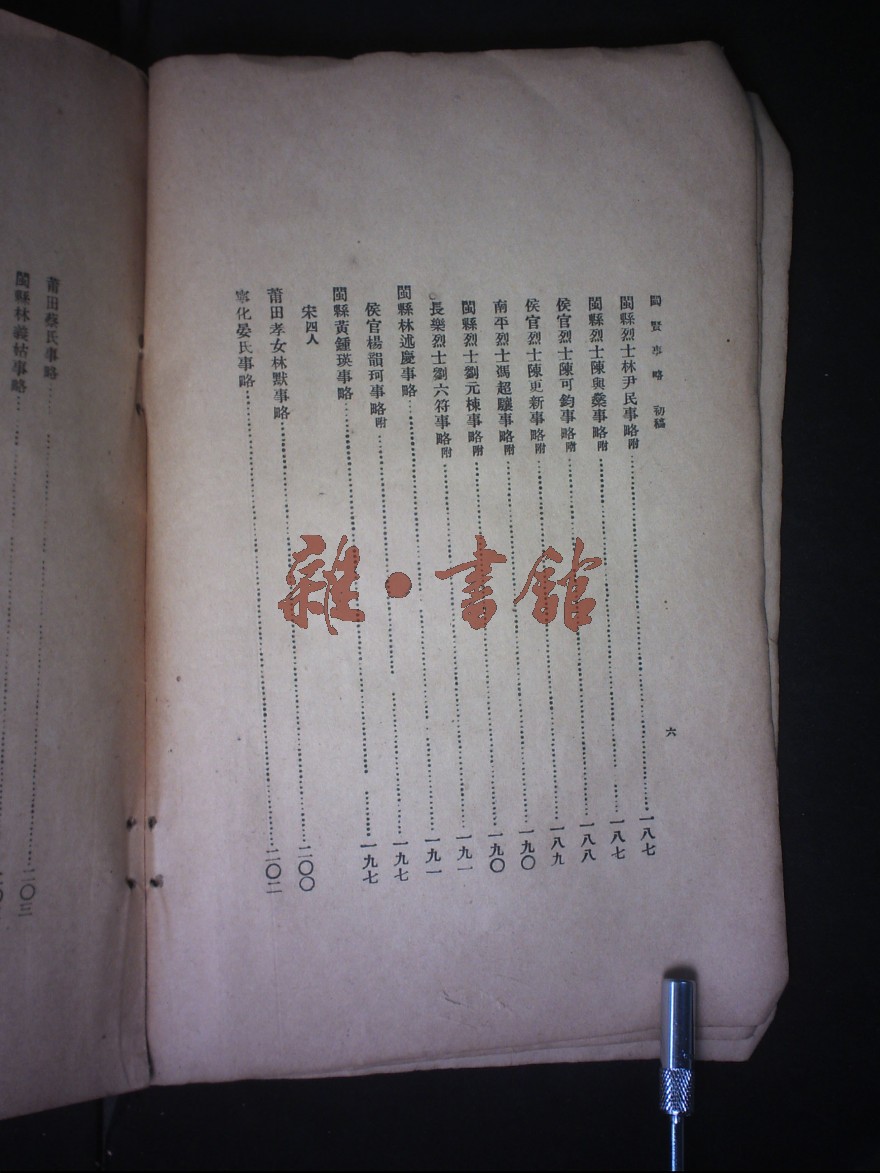 閩賢事略 初稿 六
閩縣烈士林尹民事略附……一八七
閩縣烈士陳與燊事略附……一八七
侯官烈士陳可鈞事略附……一八八
侯官烈士陳更新事略附……一八九
南平烈士馮超驤事略附……一九〇
閩縣烈士劉元棟事略附……一九〇
長樂烈士劉六符事略附……一九一
閩縣林述慶事略……一九一
侯官楊韻珂事略附……一九七
閩縣黃鍾瑛事略……一九七
宋四人
莆田孝女林默事略……二〇〇
寧化晏氏事略……二〇二
莆田蔡氏事略……二〇三
閩縣林義姑事略……
雜·書館